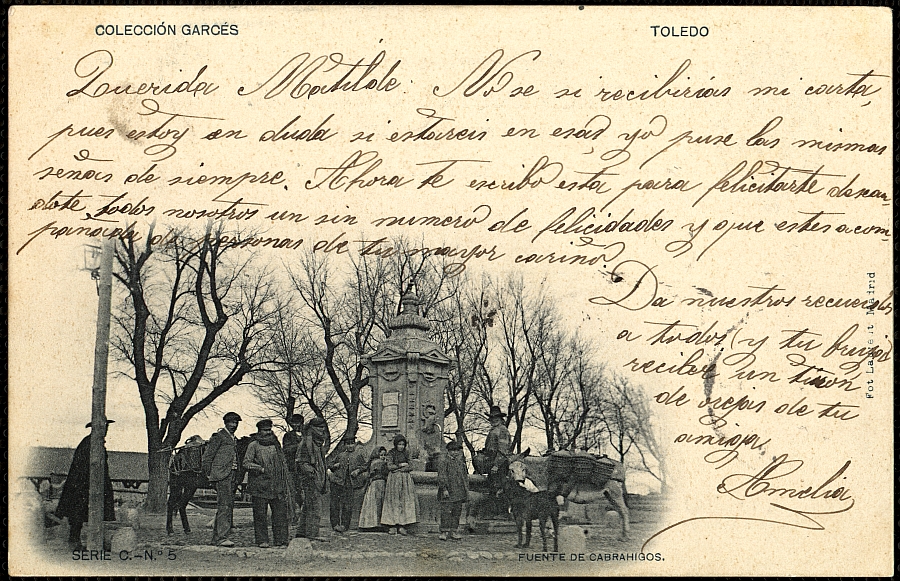 COLECCIÓN GARCÉS
TOLEDO
Querida Matilde. No se si recibirías mi carta,
pues estoy en duda si estareis en esa, yo puse las mismas
señas de siempre. Ahora te escribo esta para felicitarte desean-
dote todos nosotros un sin numero de felicidades y que estes acom-
pañada de personas de tu mayor cariño.
Da nuestros recuerdos
a todos y tu
recibe un tiron
de orejas de tu
amiga
Amelia
Madrid
SERIE C.-N.º 5
FUENTE DE CABRAHIGOS.